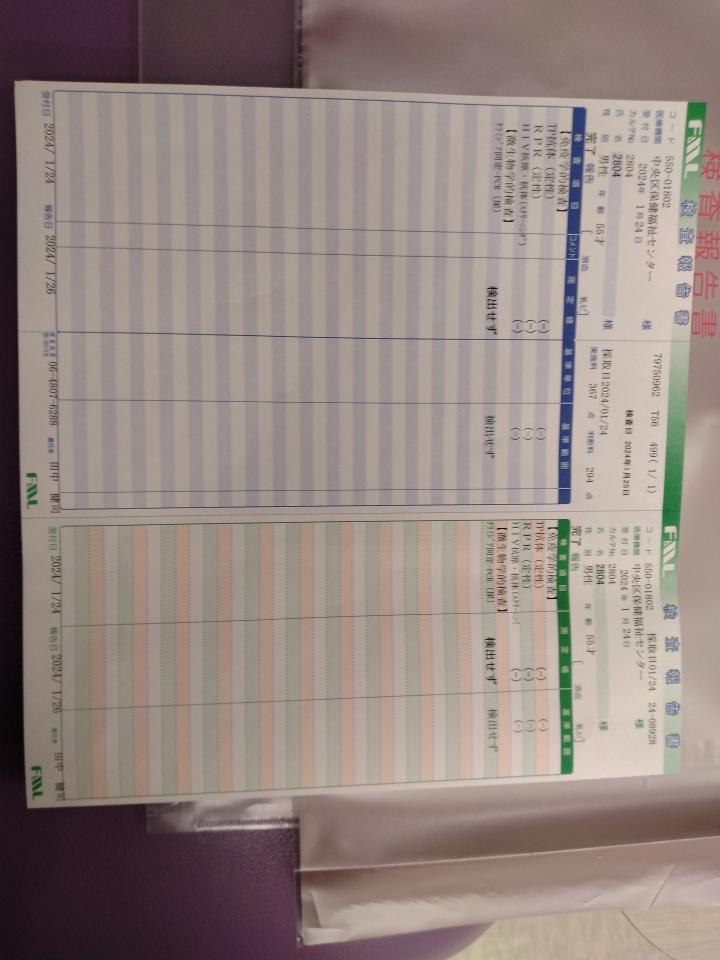 検査報告書
FML 検査報告書
コード 550-01802
79750962 T56 499 ( 1/ 1)
医療機関 中央区保健福祉センター 様
受付日 2024年 1月24日
検査日 2024年1月25日
カルテNo 2804
氏名 2804 様
採取日2024/01/24
性別 男性 年齢 55才
実施料 367 点 判断料 294 点
完了 報告 [ 溶血 乳ビ ]
検査項目 コメント 測定値 基準単位 基準範囲
【免疫学的検査】
TP抗体 (定性) (-) (-)
RPR (定性) (-) (-)
HIV抗原・抗体(スクリーニング) (-) (-)
【微生物学的検査】
クラミジア同定-PCR (尿) 検出せず 検出せず
受付日 2024/ 1/24 報告日 2024/ 1/26
06-4807-6288
責任者 田中 健司
FML
FML 検査報告書
コード 550-01802 採取日01/24 24-08928
医療機関 中央区保健福祉センター 様
受付日 2024年 1月24日
カルテNo 2804
氏名 2804 様
性別 男性 年齢 55才
完了 報告 [ 溶血 乳ビ ]
検査項目 測定値 基準範囲
【免疫学的検査】
TP抗体 (定性) (-) (-)
RPR (定性) (-) (-)
HIV抗原・抗体(スクリーニング) (-) (-)
【微生物学的検査】
クラミジア同定-PCR (尿) 検出せず 検出せず
受付日 2024/ 1/24 報告日 2024/ 1/26 責任者 田中 健司
FML